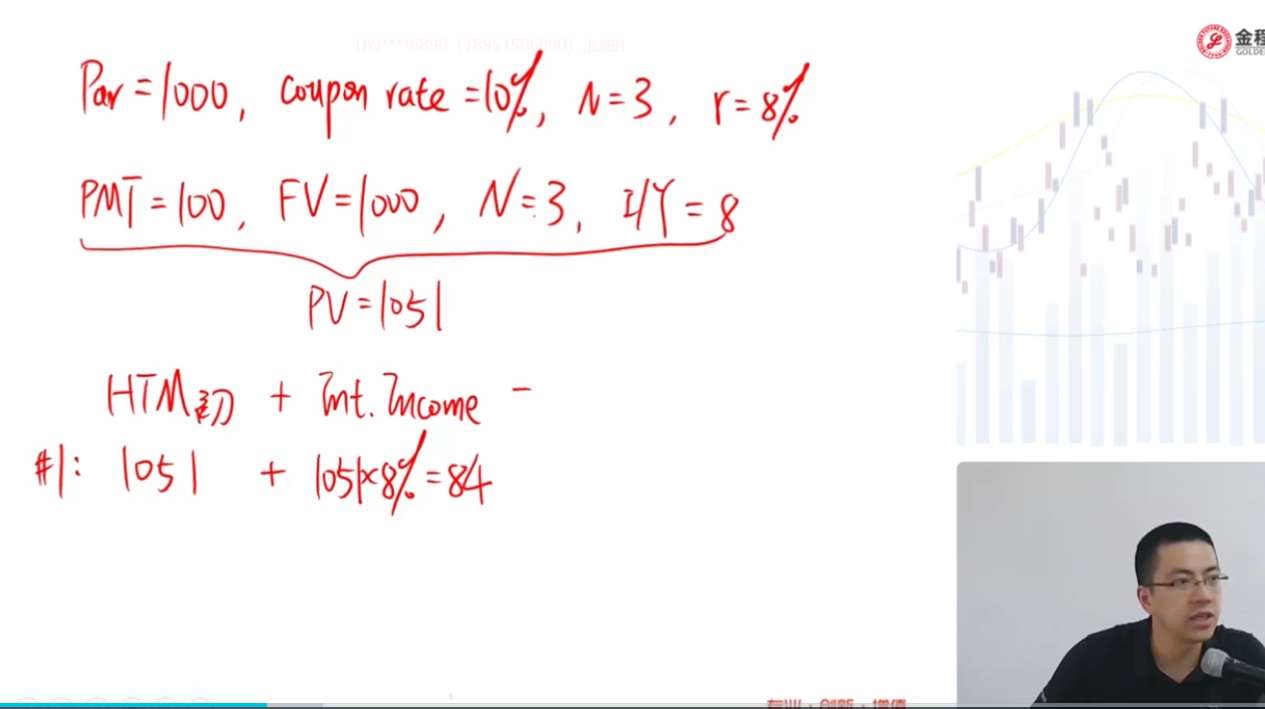 金程
GOLDE
Par = 1000, coupon rate = 10%, N = 3, r = 8%
PMT = 100, FV = 1000, N = 3, I/Y = 8
PV = 1051
HTM初 + Int. Income -
#1: 1051 + 1051×8% = 84
专业·创新·增值